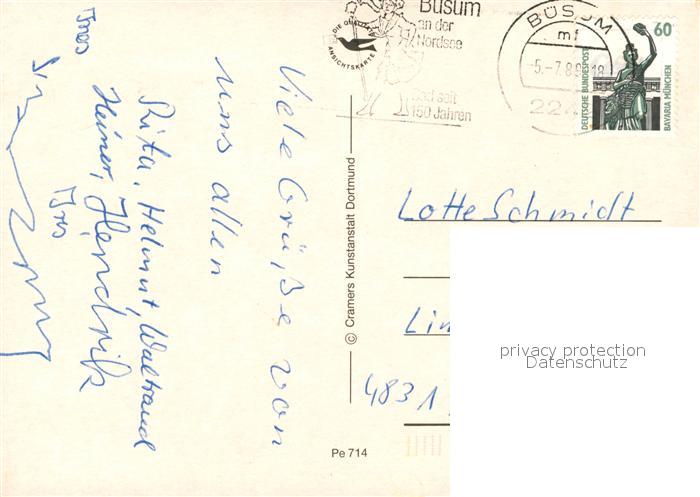 Viele Grüße von
uns allen
Rita, Helmut, Waltraud
Heiner, Hendrik
Ines
Ines
DIE QUALITÄTS
ANSICHTSKARTE
Büsum
an der
Nordsee
Bad seit
150 Jahren
BÜSUM
mf
-5.-7.8
18
224
60
DEUTSCHE BUNDESPOST
BAVARIA MÜNCHEN
© Cramers Kunstanstalt Dortmund
Lotte Schmidt
Lin
4831
privacy protection
Datenschutz
Pe 714